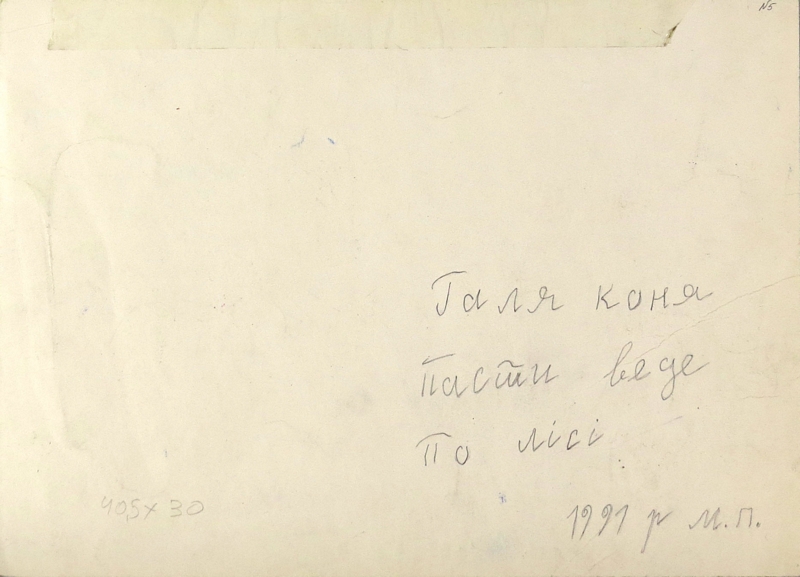 N5
Галя коня
пасти веде
по лісі
1991 р м.п.
40,5x30